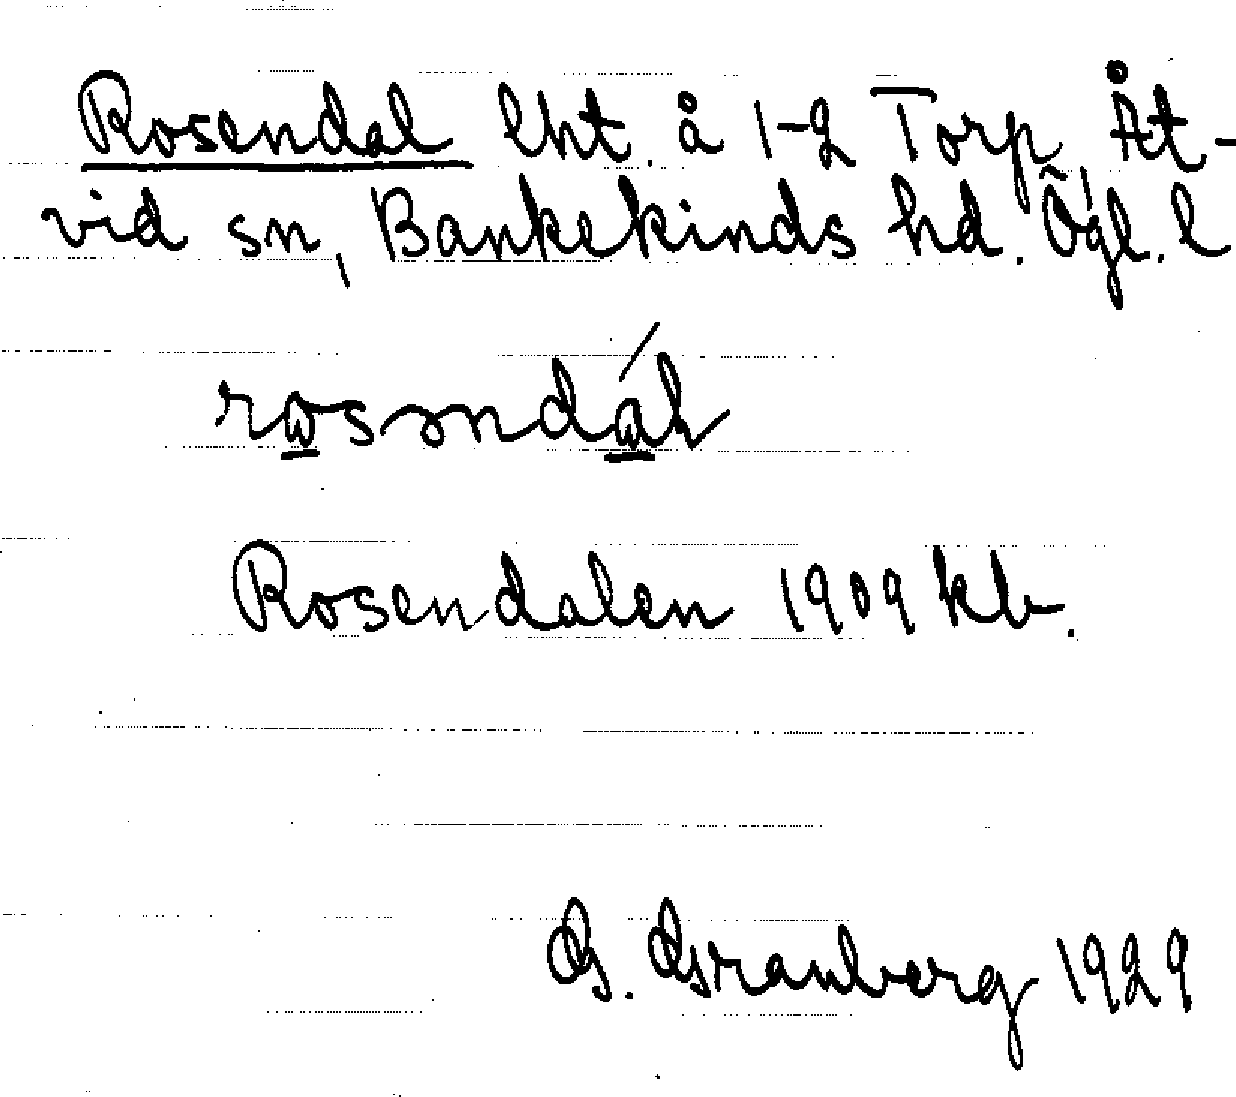 Rosendal lht. å 1-2 Torp, Åt-
vid sn, Bankekinds hd. Ögl. l
Rosendalen 1909 kb.
G. Granberg 1929